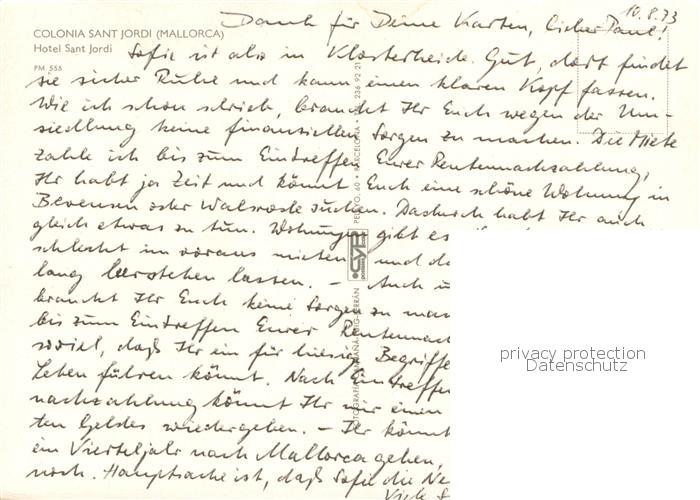 10.8.73
Dank für Deine Karten, lieber Paul!
COLONIA SANT JORDI (MALLORCA)
Hotel Sant Jordi
PM 558
Sofie ist also in Klosterheide. Gut, dort findet
sie sicher Ruhe und kann einen klaren Kopf fassen.
Wie ich schon schrieb, braucht Ihr Euch wegen der Um-
siedlung keine finanziellen Sorgen zu machen. Die Miete
zahle ich bis zum Eintreffen Eurer Rentennachzahlung,
Ihr habt ja Zeit und könnt Euch eine schöne Wohnung in
Bevensen oder Walsrode suchen. Dadurch habt Ihr auch
gleich etwas zu tun. Wohnungen gibt es
schlecht im voraus mieten und
lang leerstehen lassen. – Auch
braucht Ihr Euch keine Sorgen zu
bis zum Eintreffen Eurer
soviel, daß Ihr ein für hiesige Begriffe
Leben führen könnt. Nach Eintreffen
nachzahlung könnt Ihr mir einen
ten Geldes wiedergeben. – Ihr könnt
ein Vierteljahr nach Mallorca gehen,
noch. Hauptsache ist, daß Sofie die
Viele
CYP
PELAYO, 60 • BARCELONA • 236 92 21
privacy protection
Datenschutz